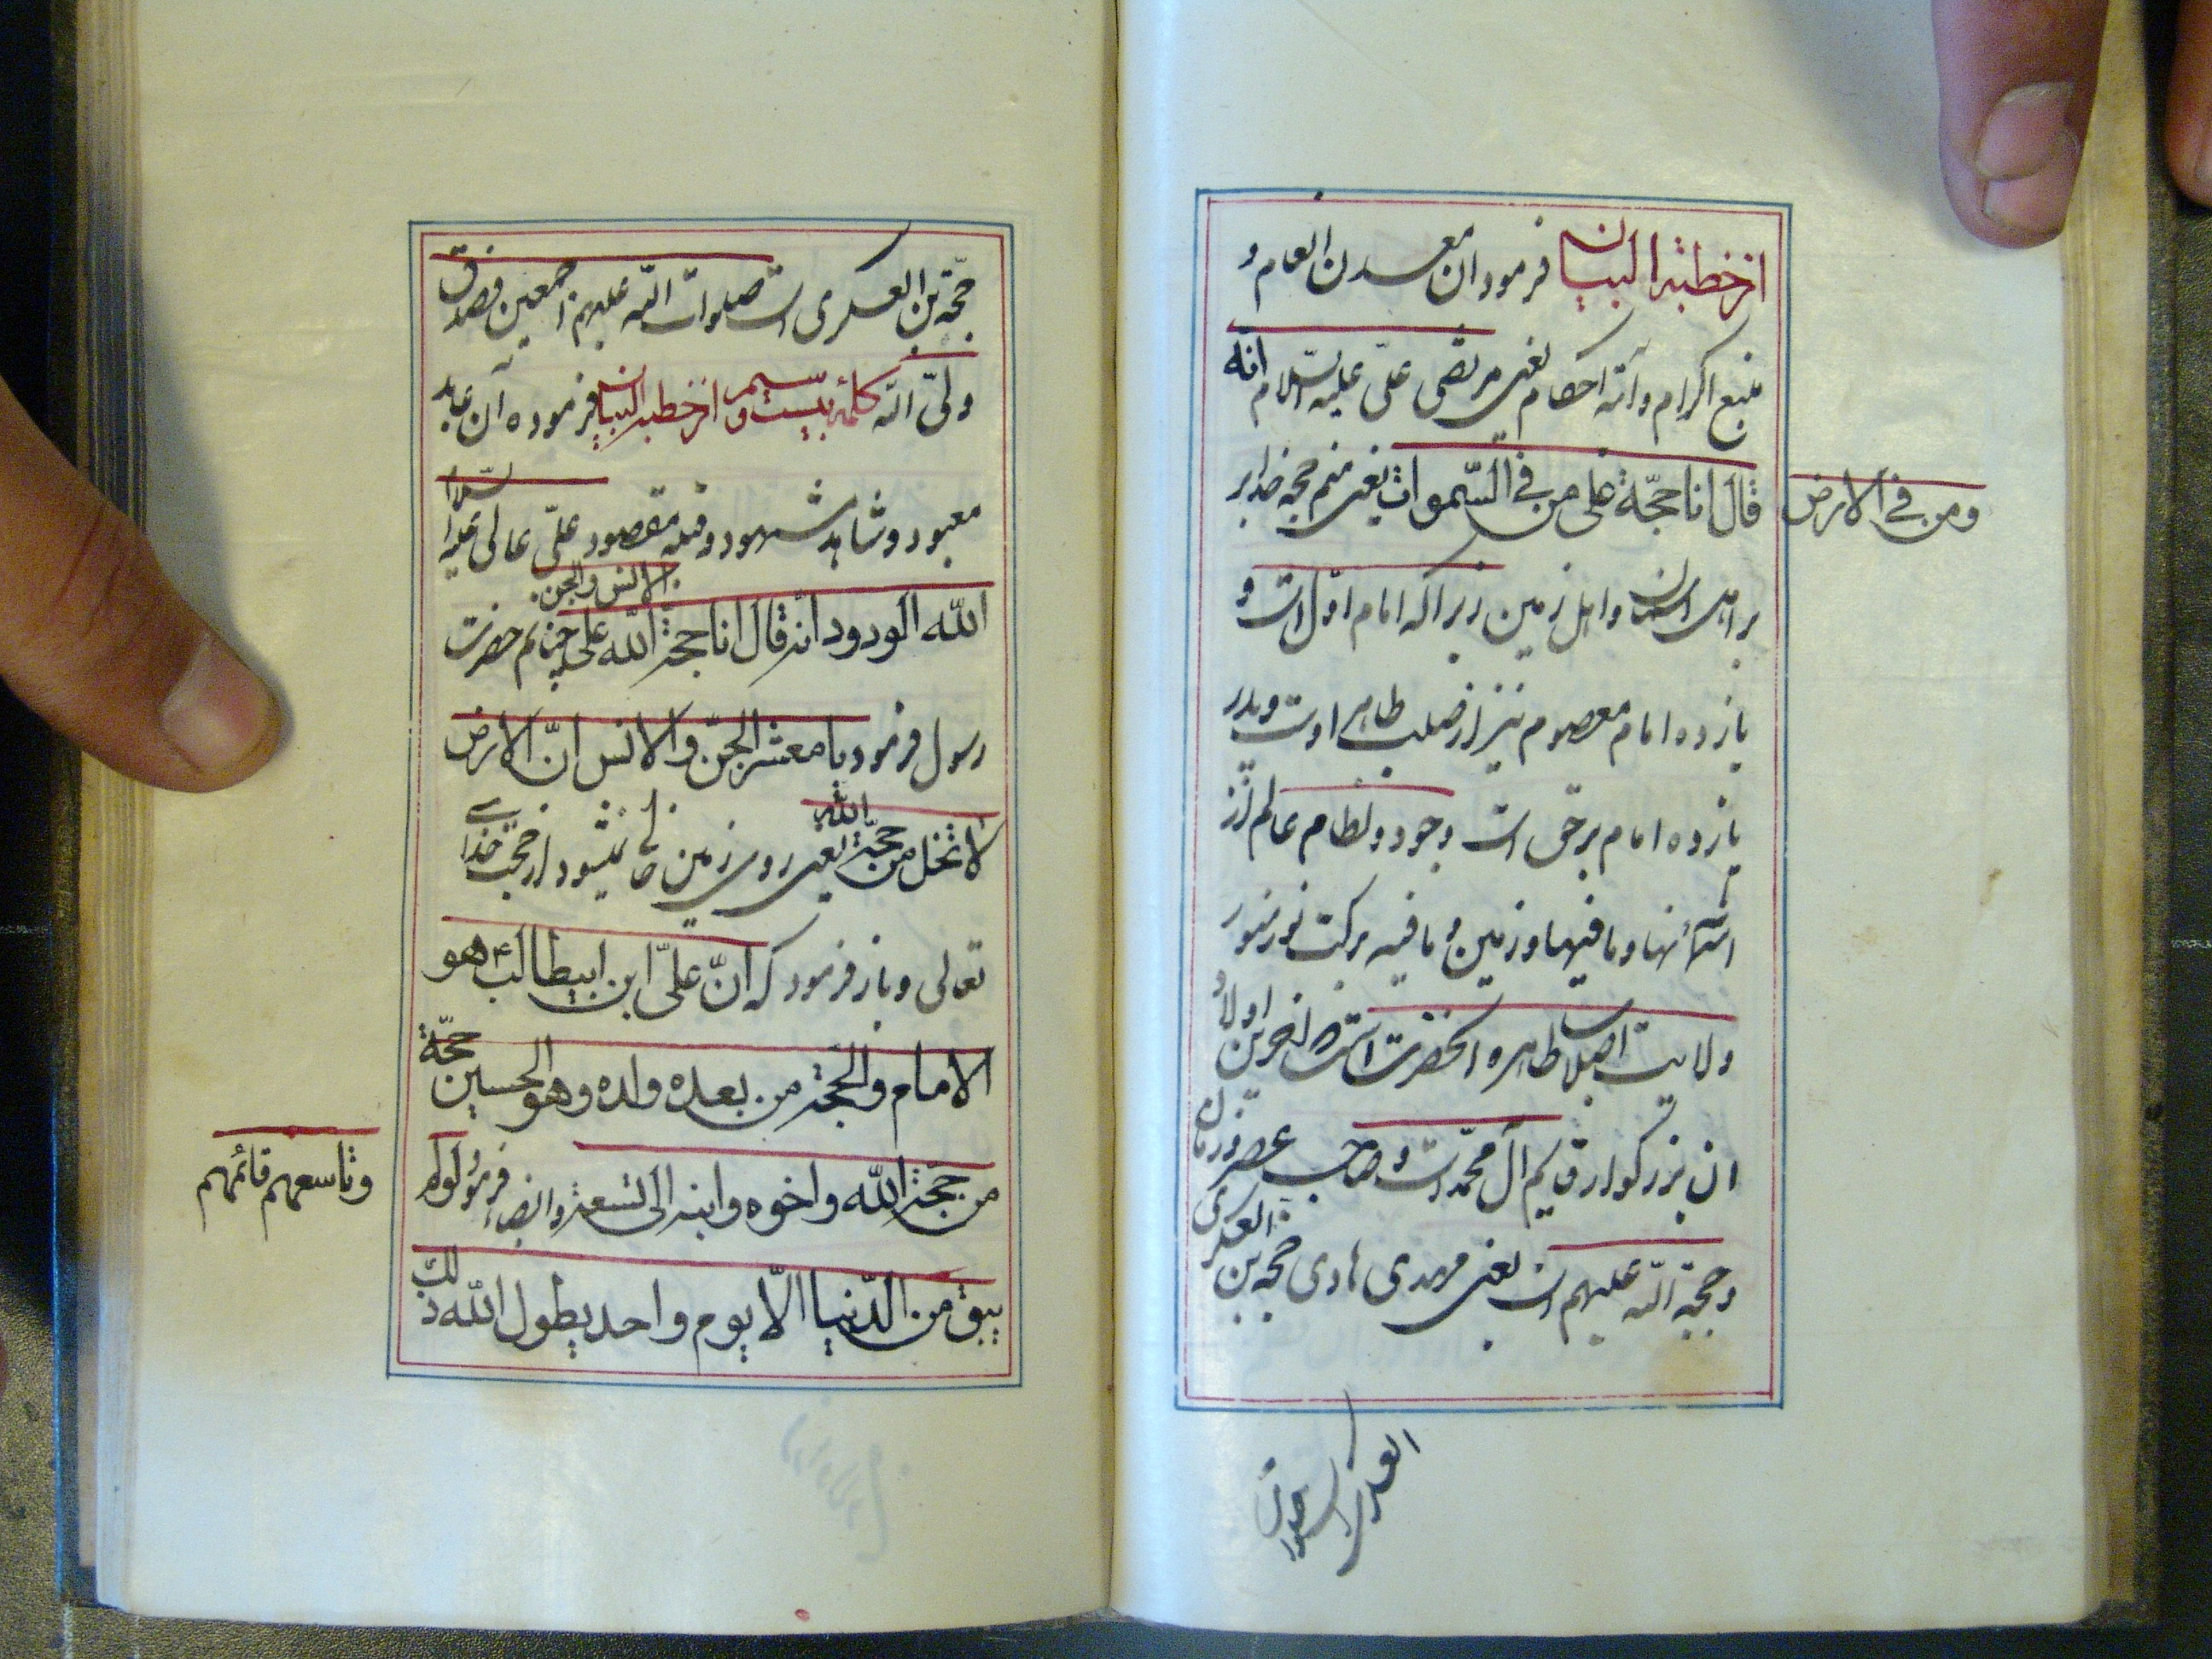 از خطبة البیان فرمود ان معدن انعام و
منبع اکرام و آیه احکام یعنی مرتضی علی علیه السلام انه
قال انا حجّة علی من فی السّموات یعنی منم حجه خدا بر
ومن فی الارض
بر اهل اسمان و اهل زمین زیرا که امام اوّل است و
یازده امام معصوم نیز از صلب طاهر اوست و پدر
یازده امام برحق است وجود و نظام عالم از
و ما فیها و زمین و ما فیه برکت نور منور
ولایت اصلاب طاهره انحضرت است اخرین اولاد
ان بزرکوار قایم آل محمّد است و صاحب عصر و زمان
و حجة اللّه علیهم است یعنی مهدی هادی حجه بن العسکری
العسکری است صلوات
حجّة بن العسکری است صلوات اللّه علیهم اجمعین فصدق
ولیّ اللّه کلمه بیست و سیم از خطبة البیان فرموده آن عابد
معبود و شاهد مشهود و قبله مقصود علیّ عالی علیه السلام
الانس والجن
اللّه الودود انه قال انا حجة اللّه علی حضرت
رسول فرمود یا معشر الجنّ والانس انّ الارض
لا تخل من حجة اللّه یعنی روی زمین خالی نمیشود از حجت خدای
تعالی و باز فرمود که انّ علیّ ابن ابیطالب ع هو
الامام والحجّة من بعده ولده وهو الحسین حجّة
من حجّة اللّه واخوه وابنه الی تسعة وایضا فرمود لو لم
وتاسعهم قائمهم
یبق من الدّنیا الّا یوم واحد یطول اللّه ذلک